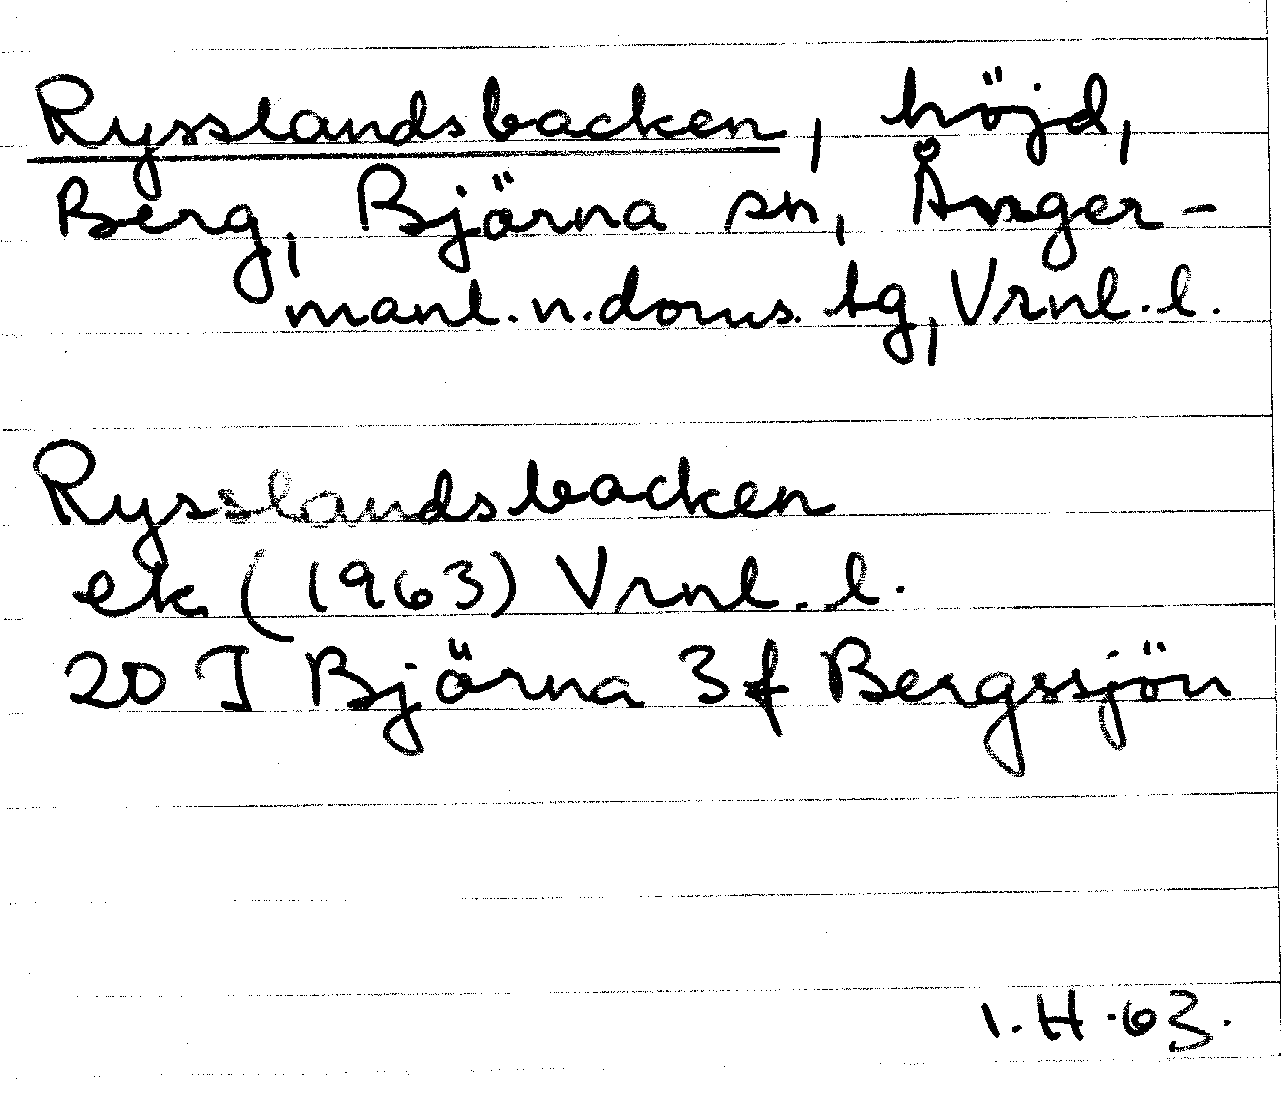 Rysslandsbacken, höjd,
Berg, Björna sn, Ånger-
manl. n. doms. tg, Vrnl. l.
Rysslandsbacken
ek (1963) Vrnl. l.
20 I Björna 3 f Bergssjön
I. H. 63.